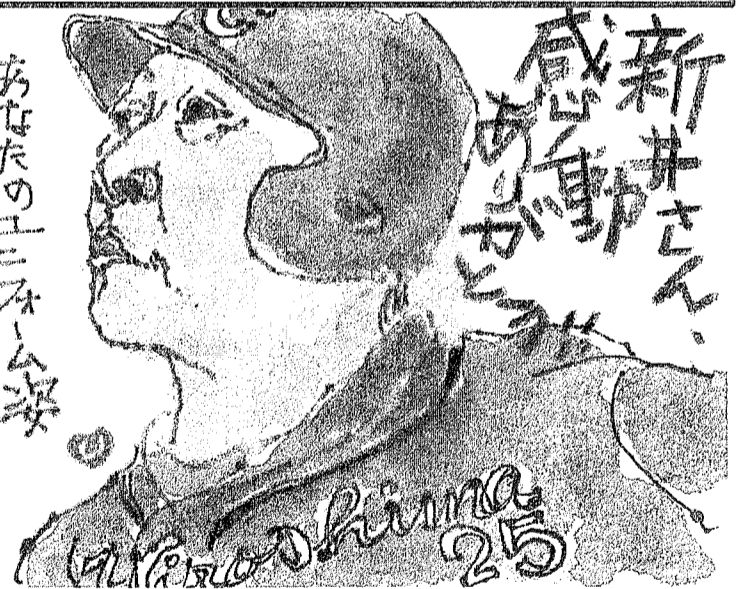 新井さん、
感動
ありがとう‼
あなたのユニフォーム姿
C
Hiroshima
25